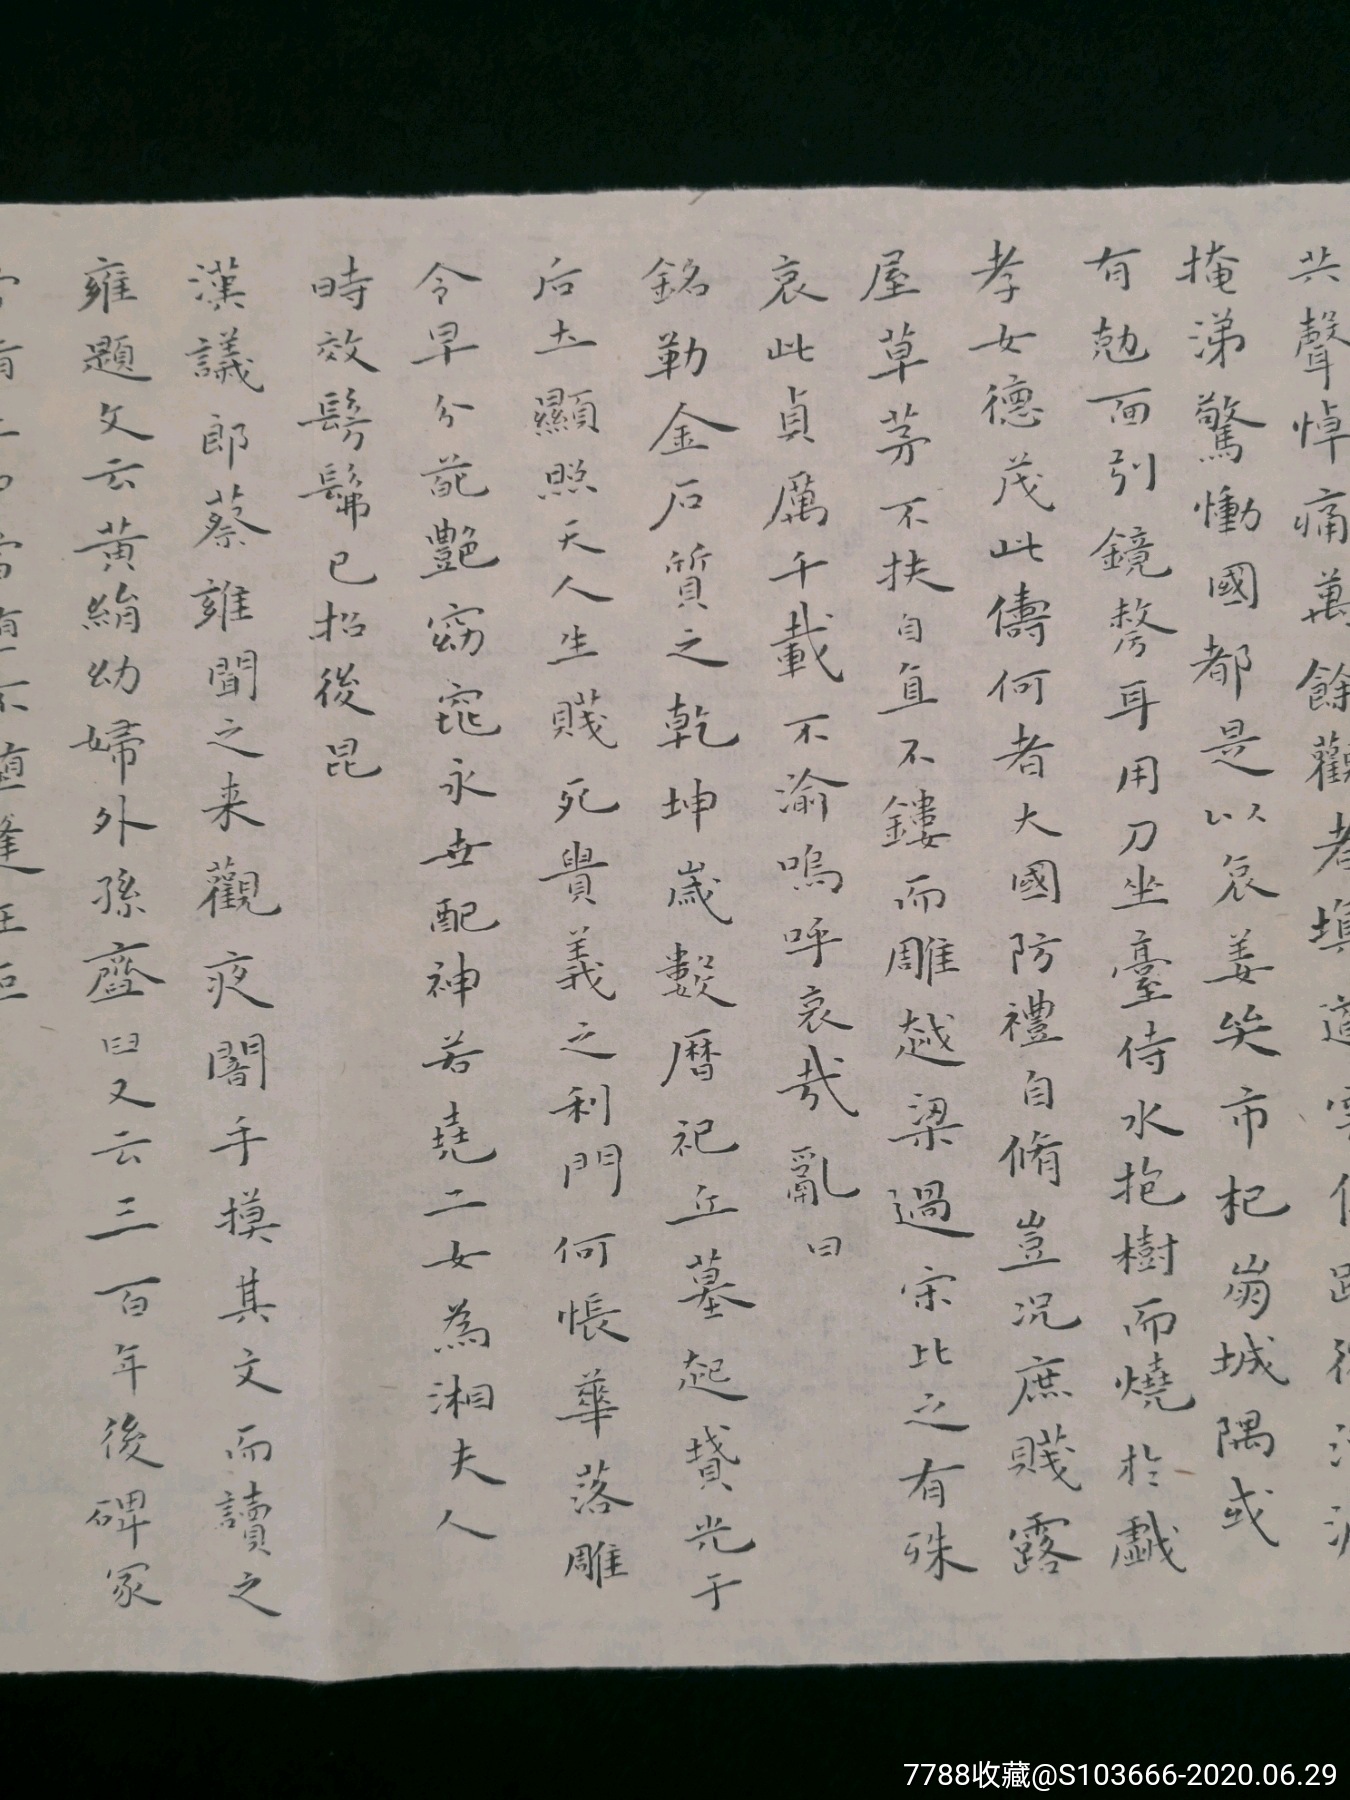 共聲悼痛萬餘觀者填道雲
掩涕驚慟國都是以哀姜哭市杞崩城隅或
有尅面引鏡剺耳用刀坐臺待水抱樹而燒於戲
孝女德茂此儔何者大國防禮自脩豈況庶賤露
屋草茅不扶自直不鏤而雕越梁過宋比之有殊
哀此貞厲千載不渝嗚呼哀哉亂曰
銘勒金石質之乾坤歲數曆祀丘墓起墳光于
后土顯照天人生賤死貴義之利門何悵華落雕
令早分葩艷窈窕永世配神若堯二女為湘夫人
時效髣髴已招後昆
漢議郎蔡雍聞之来觀夜闇手摸其文而讀之
雍題文云黃絹幼婦外孫齏臼又云三百年後碑冢
7788收藏@S103666-2020.06.29